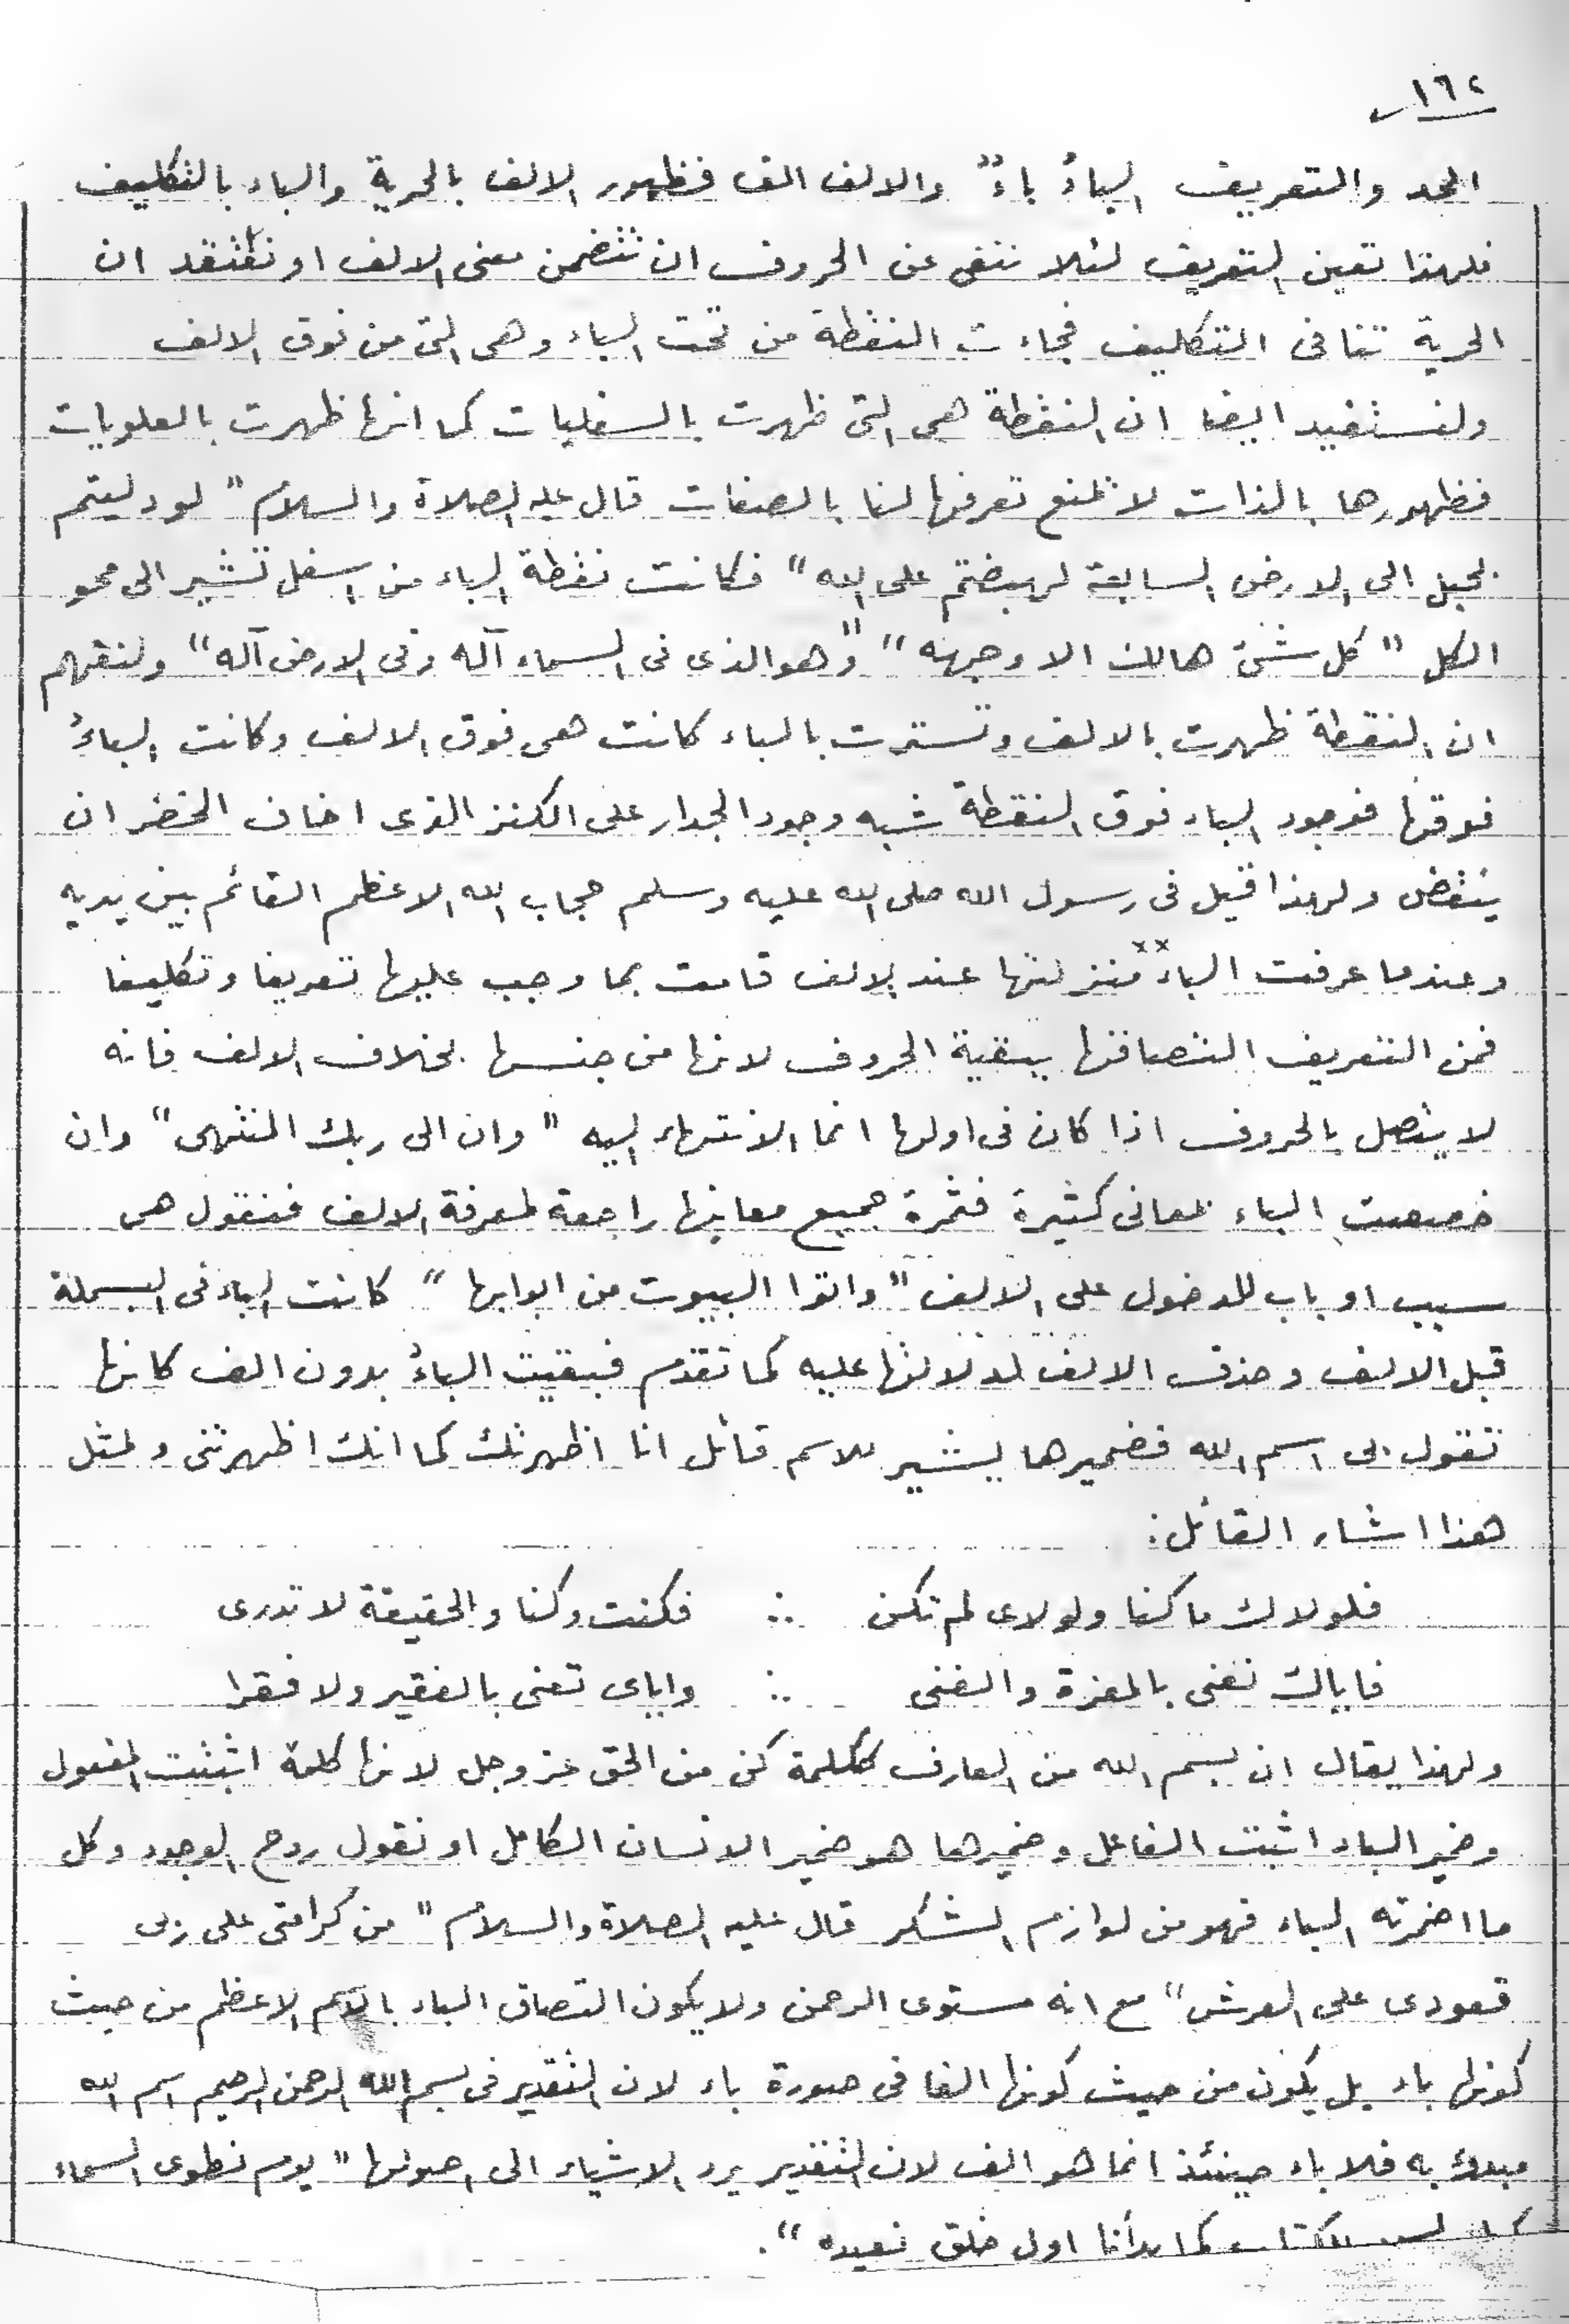 ١٦٢
الحد والتعريف الباءُ باءٌ والالف الف فظهور الالف بالحرية والباء بالتكليف
فلهذا تعين التعريف لئلا ننفى عن الحروف ان تتضمن معنى الالف او نعتقد ان
الحرية تنافى التكليف فجاءت النقطة من تحت الباء وهى التى من فوق الالف
ولنستفيد ايضا ان النقطة هى التى ظهرت بالسفليات كما انها ظهرت بالعلويات
فظهورها بالذات لا تمنع تعرفها لنا بالصفات قال عليه الصلاة والسلام " لو دليتم
بحبل الى الارض السابعة لهبطتم على الله " فكانت نقطة الباء من اسفل تشير الى محو
الكل " كل شئ هالك الا وجهه " " وهو الذى فى السماء آله وفى الارض آله " ولنفهم
ان النقطة ظهرت بالالف وتسترت بالباء كانت هى فوق الالف وكانت الباءُ
فوقها فوجود الباء فوق النقطة شبه وجود الجدار على الكنز الذى اخاف الخضر ان
ينقض ولهذا قيل فى رسول الله صلى الله عليه وسلم حجاب الله الاعظم القائم بين يديه
وعندما عرفت الباء منزلتها عند الالف قامت بما وجب عليها تعريفا وتكليفا
فمن التعريف التصاقها ببقية الحروف لانها من جنسها بخلاف الالف فانه
لا يتصل بالحروف اذا كان فى اولها انما الانتهاء اليه " وان الى ربك المنتهى " وان
خصصت الباء بمعانى كثيرة فثمرة جميع معانيها راجعة لمعرفة الالف فنقول هى
سبب او باب للدخول على الالف " واتوا البيوت من ابوابها " كانت الباء فى البسملة
قبل الالف وحذف الالف لدلالتها عليه كما تقدم فبقيت الباءُ بدون الف كانها
تقول بى اسم الله فضميرها يشير للاسم قائل انا اظهرتك كما انك اظهرتنى ولمثل
هذا اشار القائل :
فلولاك ما كنا ولولاى لم تكن ∴ فكنت وكنا والحقيقة لا تدرى
فاياك نعنى بالمعزة والغنى ∴ واياى تعنى بالفقير ولا فقرا
ولهذا يقال ان بسم الله من العارف ككلمة كن من الحق عز وجل لانها كلمة اثبتت المفعول
وضمير الباء اثبت الفاعل وضميرها هو ضمير الانسان الكامل او نقول روح الوجود وكل
ما اضمرته الباء فهو من لوازم الشكر قال عليه الصلاة والسلام " من كرامتى على ربى
قعودى على العرش " مع انه مستوى الرحمن ولا يكون التصاق الباء بالاسم الاعظم من حيث
كونها باء بل يكون من حيث كونها الفا فى صورة باء لان التقدير فى بسم الله الرحمن الرحيم اسم الله
مبدوء به فلا باء حينئذ انما هو الف لان التقدير يرد الاشياء الى اصولها " يوم نطوى السماء
كما بدأنا اول خلق نعيده " .